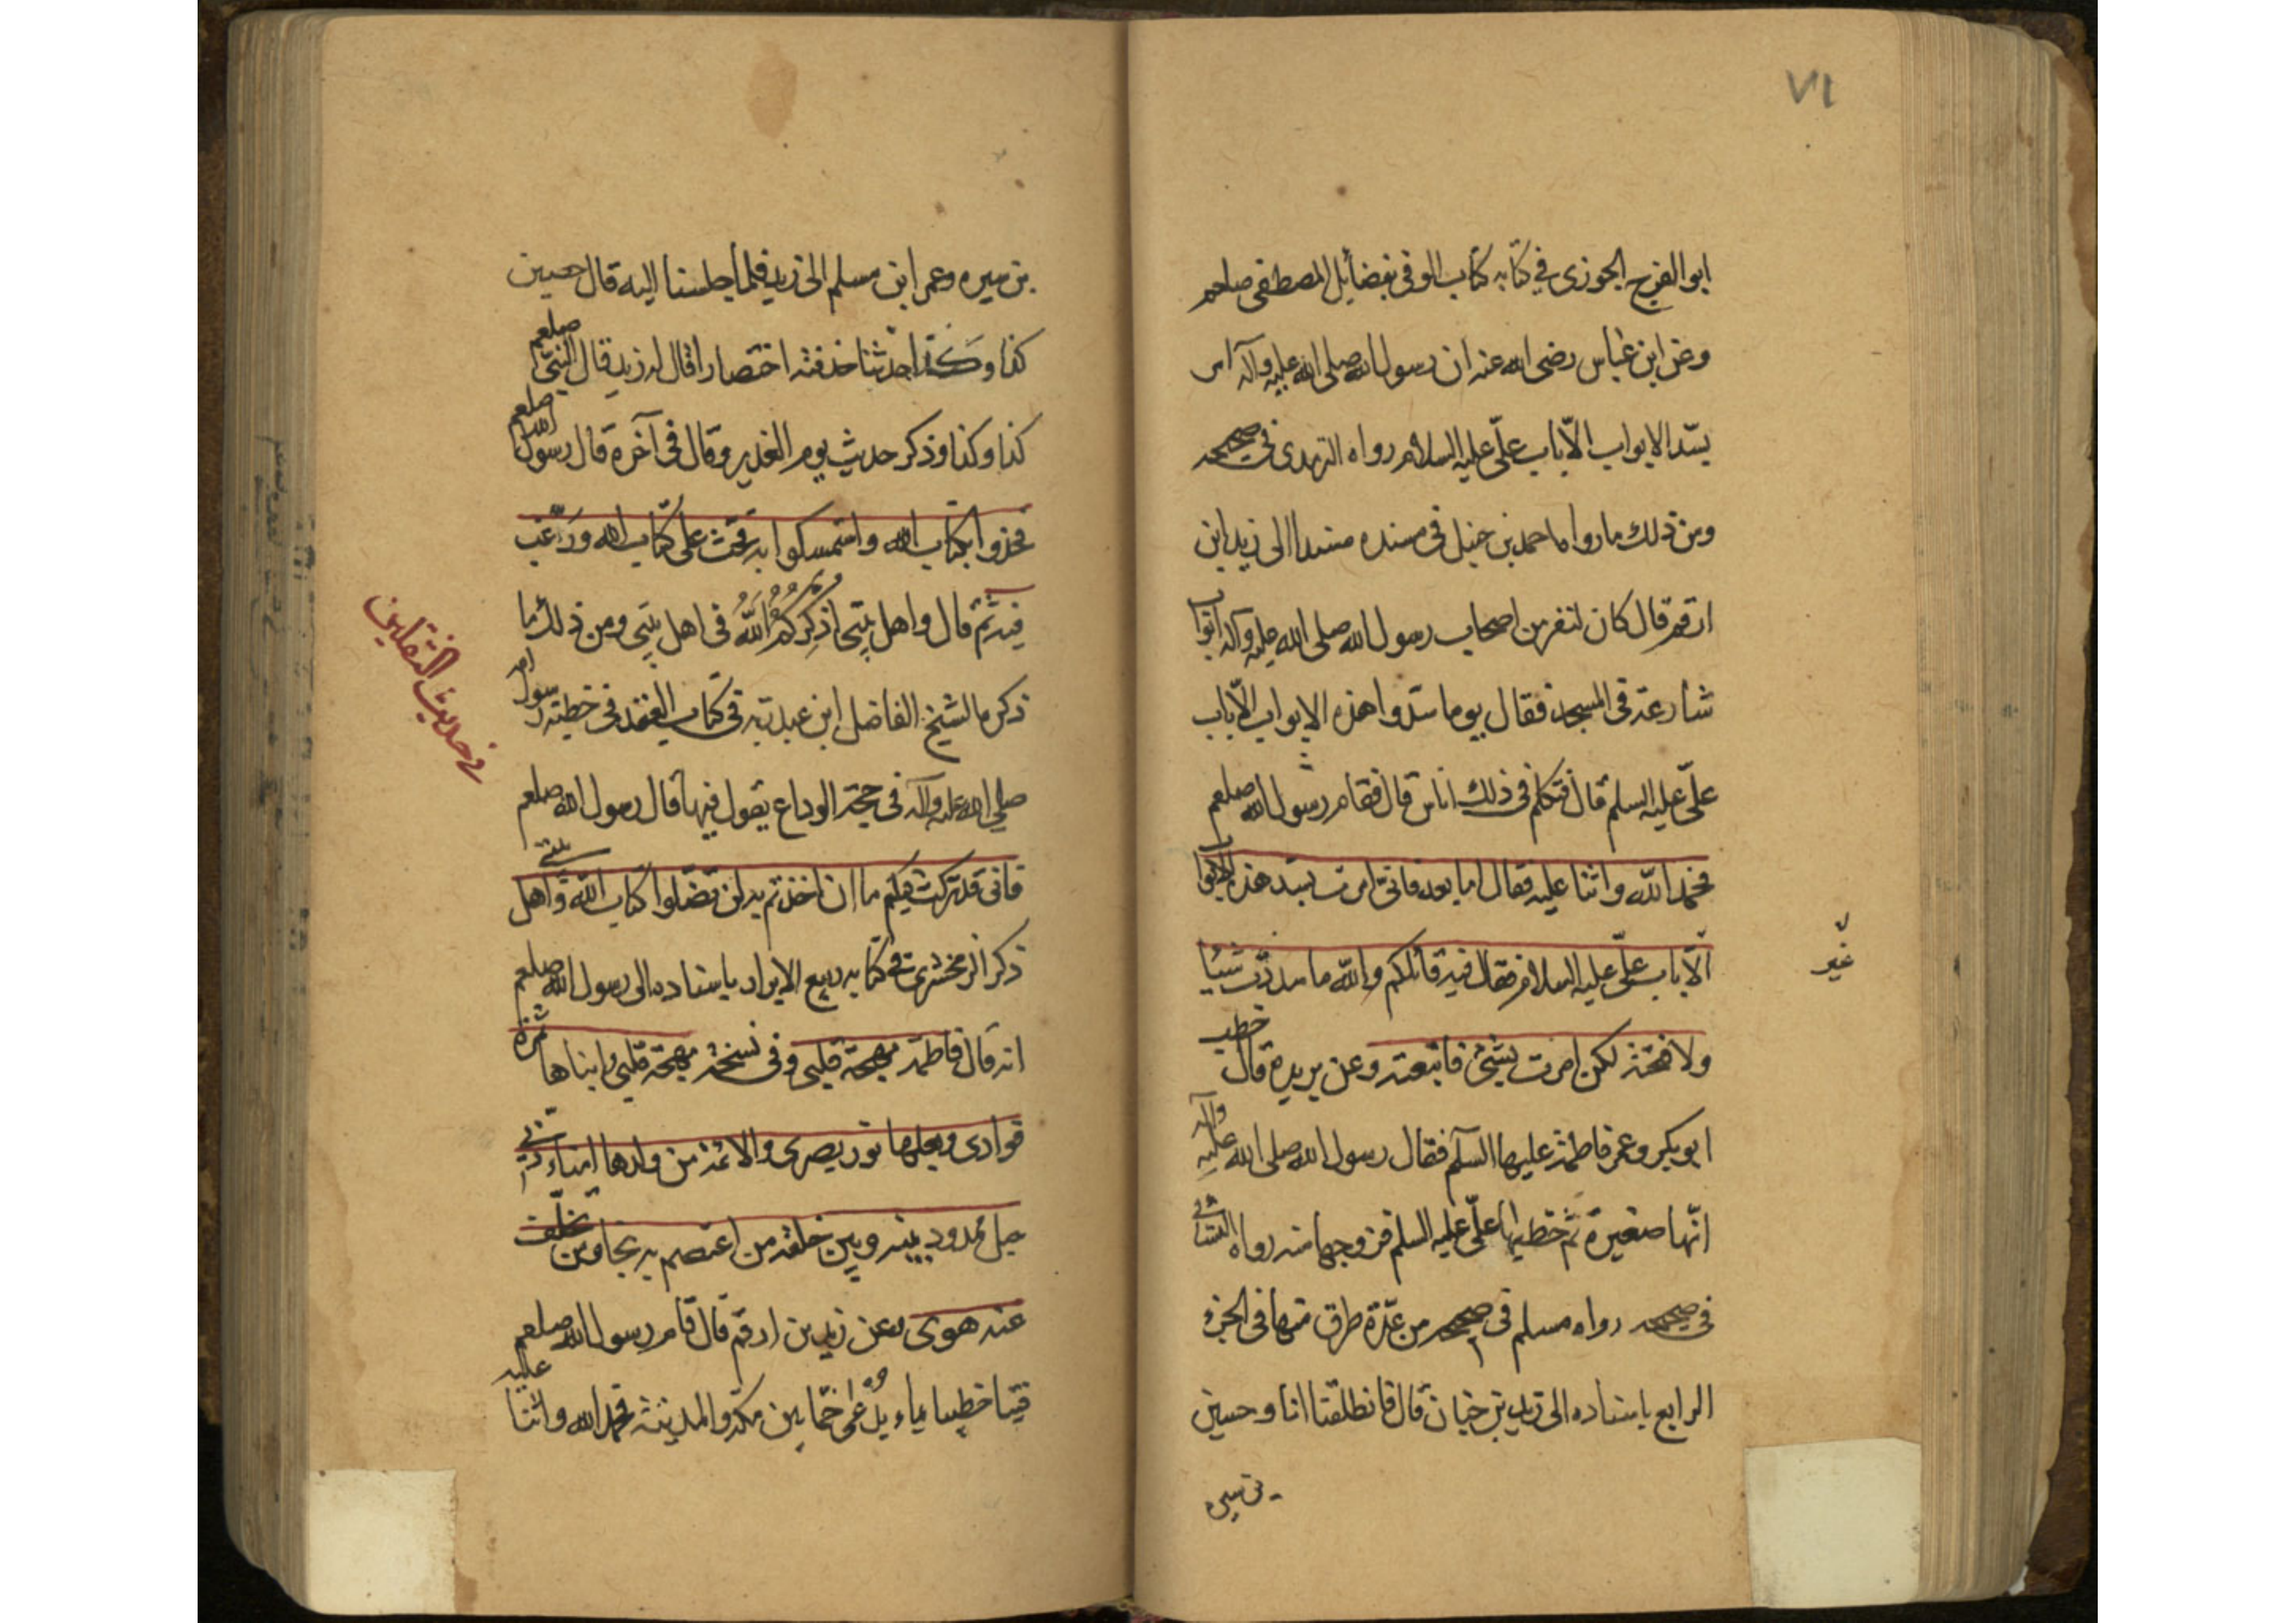 ٧١
ابو الفرج الجوزى فى كتابه كتاب الوفى بفضائل المصطفى صلعم
وعن ابن عباس رضى الله عنه ان رسول الله صلى الله عليه وآله امر
بسّد الابواب الّا باب علىّ عليه السلام رواه الترمدى فى صحيحه
ومن ذلك ما رواه احمد بن حنبل فى مسنده مسندا الى زيد ابن
ارقم قال كان لنفر من اصحاب رسول الله صلى الله عليه وآله ابواب
شارعة فى المسجد فقال يوما سدّوا هذه الابواب الّا باب
علىّ عليه السلم قال فتكلم فى ذلك اناس قال فقام رسول الله صلعم
فحمد اللّه واثنا عليه فقال اما بعد فانىّ امرت بسدّ هذه الابواب
الّا باب علىّ عليه السلام فقال فيه قائلكم واللّه ما سددّت شيئا
غير
ولا فتحته لكن امرت بشيئ فاتبعته وعن بريدة قال خطب
ابو بكر وعمر فاطمة عليها السلم فقال رسول الله صلى الله عليه وآله
انّها صغيرة ثم خطبها علىّ عليه السلم فزوجها منه رواه النسائى
فى صحيحه رواه مسلم فى صحيحه من عدّة طرق منها فى الجزء
الرابع باسناده الى زيد بن حيان قال فانطلقنا انا وحسين
بن سيره
بن سيره وعمر ابن مسلم الى زيد فلما جلسنا اليه قال حسين
كذا وكذا حدثنا حذفته اختصارا قال له زيد قال النبىّ صلعم
كذا وكذا وذكر حديث يوم الغدير وقال فى آخره قال رسول الله صلعم
فخذوا بكتاب الله واستمسكوا به فحث على كتاب الله ورغّب
فيه ثم قال واهل بيتى اذكركم اللّه فى اهل بيتى ومن ذلك ما
فى حديث الثقلين
ذكره الشيخ الفاضل ابن عبد ربه فى كتاب العقد فى خطبته رسول الله
صلى الله عليه وآله فى حجة الوداع يقول فيها قال رسول الله صلعم
فانى قد تركت فيكم ما ان اخذتم به لن تضلّوا كتاب اللّه واهل بيتى
ذكر الزمخشرى فى كتابه ربيع الابرار باسناده الى رسول الله صلعم
انه قال فاطمة مهجة قلبى وفى نسخة بهجة قلبى وابناها ثمرة
فوادى وبعلها نور بصرى والائمة من ولدها امناء ربّى
حبل ممدود بينه وبين خلقه من اعتصم به نجا ومن تخلّف
عنه هوى وعن زيد بن ارقم قال قام رسول الله صلعم
فينا خطيبا بماء يدعى خمّا بين مكة والمدينة فحمد الله واثنا عليه